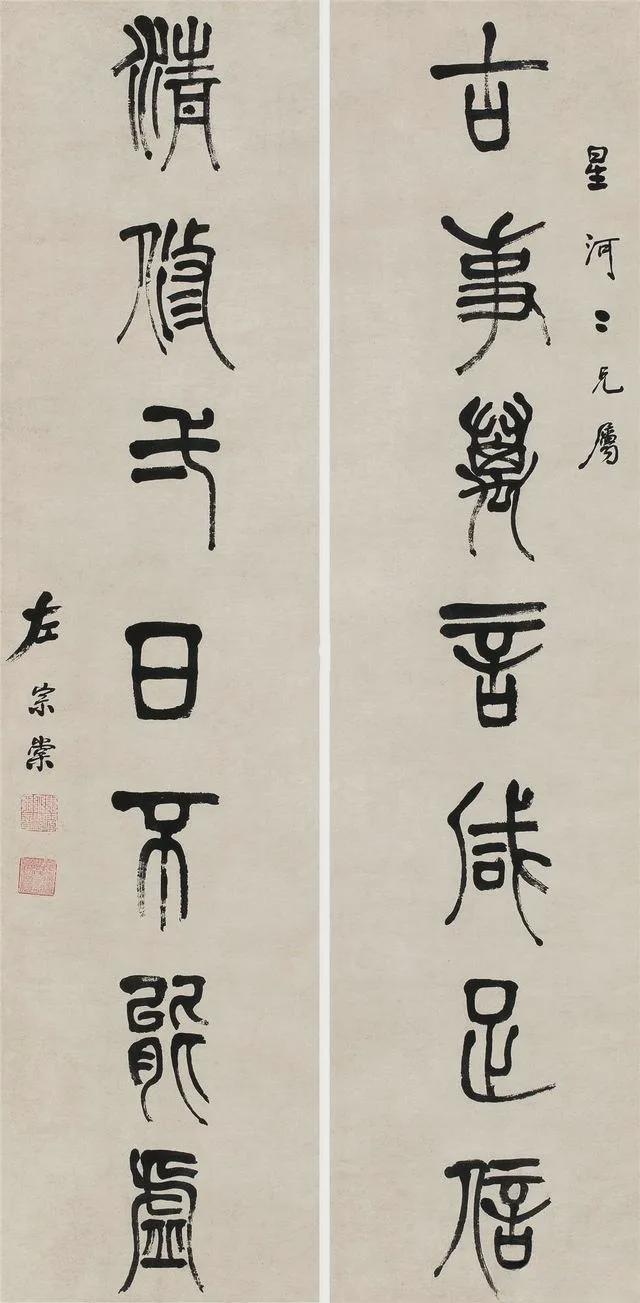 星河二兄屬
古事萬言咸足信
清修千日不能虛
左宗棠